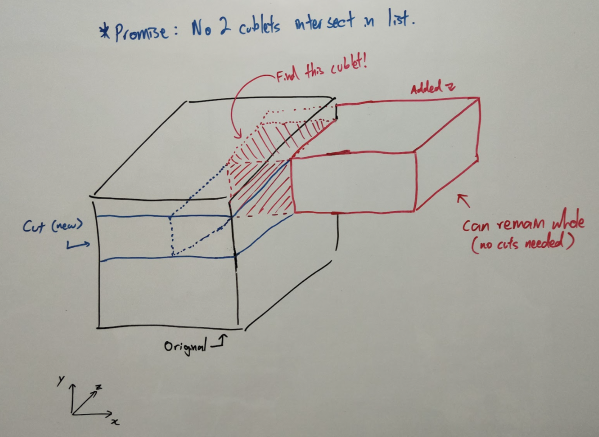 * Promise: No 2 cublets intersect in list.
Find this cublet!
Added
Cut (new)
Can remain whole
(no cuts needed)
Original
y
z
x